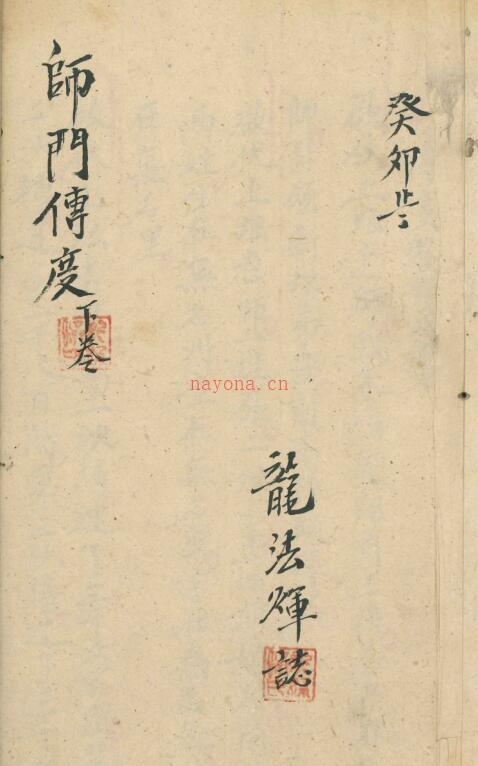 癸卯岁
龍法輝誌
師門傳度下卷
nayona.cn